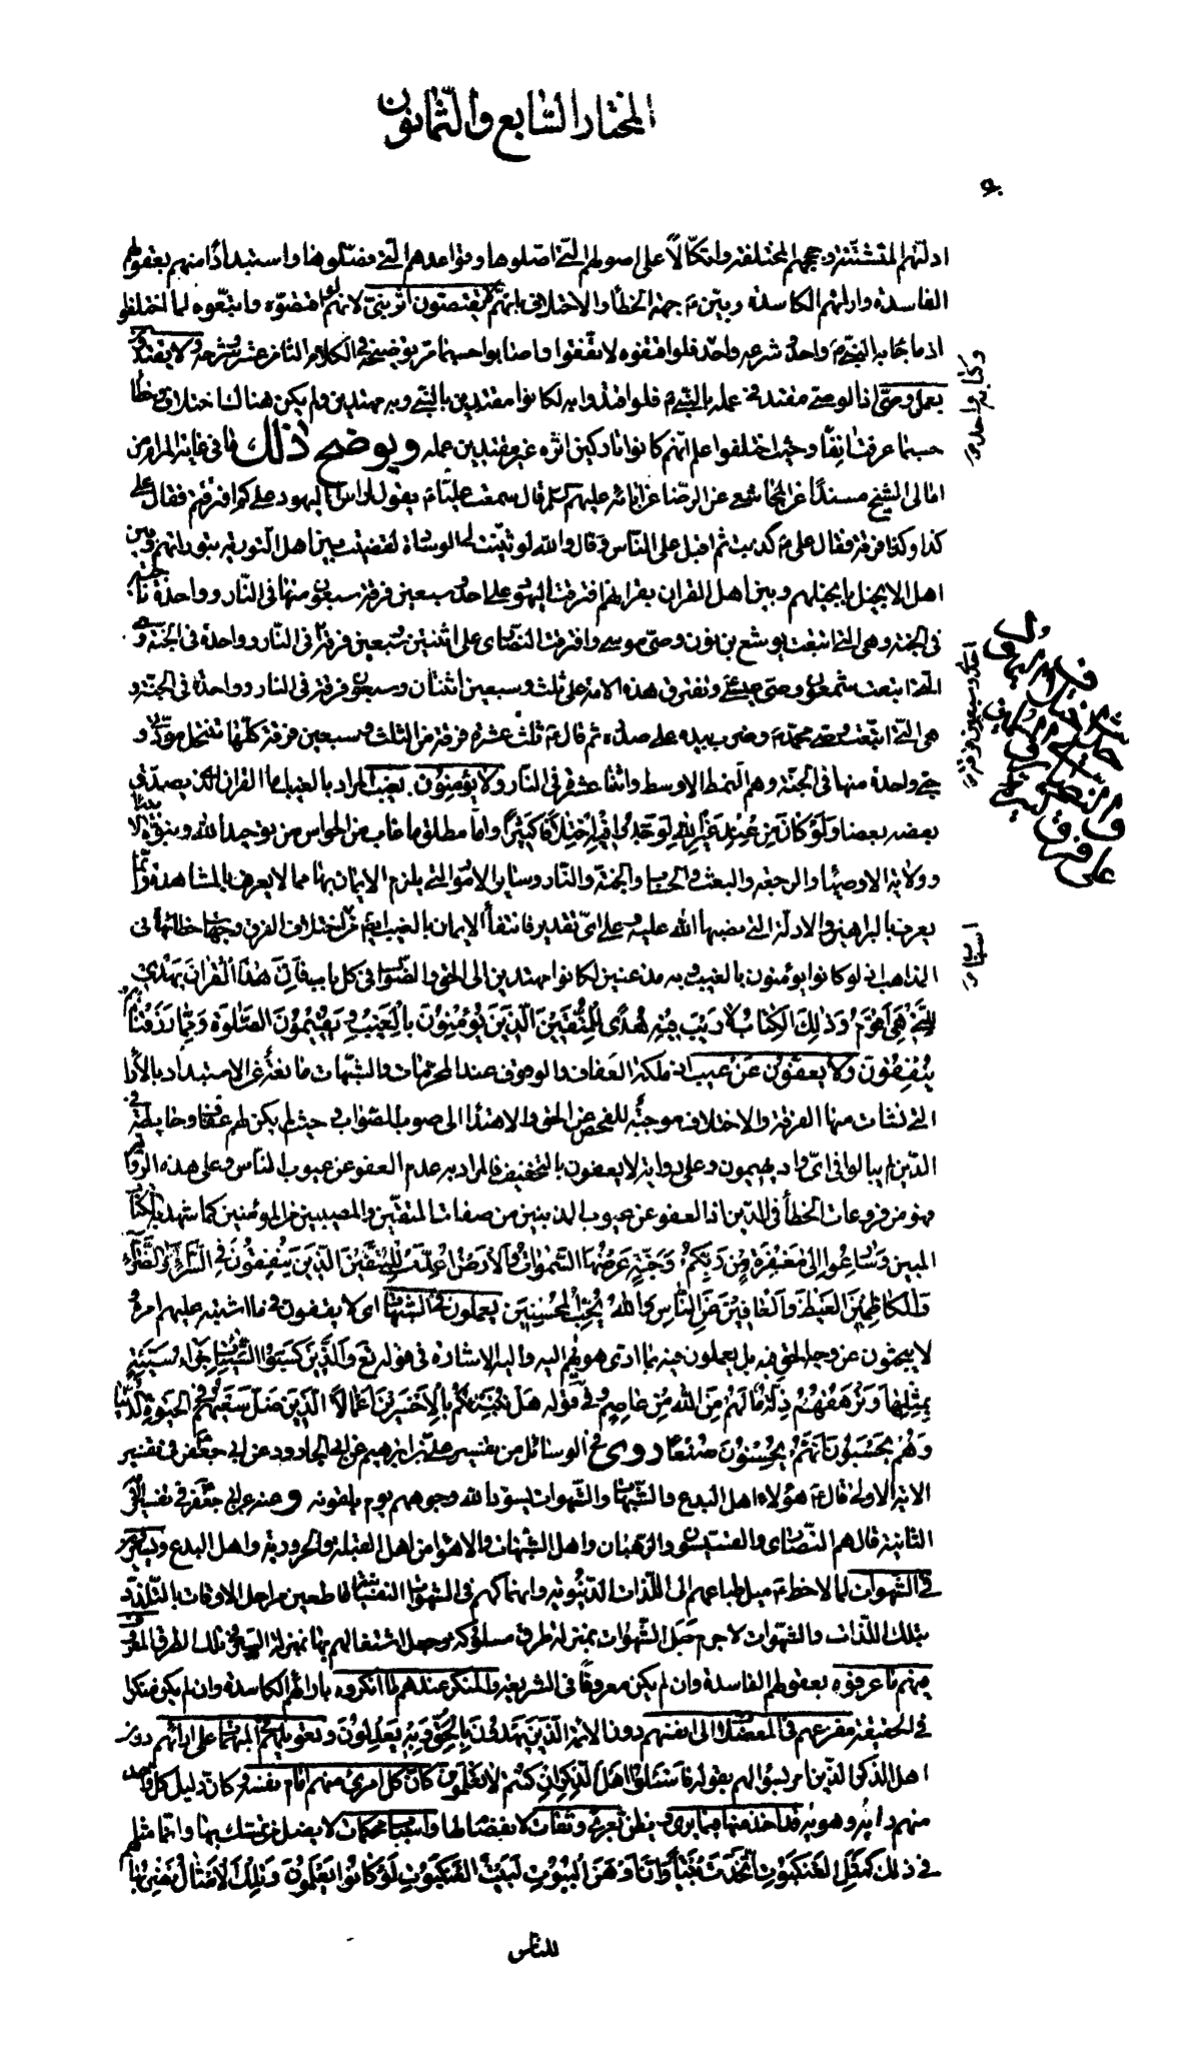 المختار السابع والثمانون
ادلتهم المتشتتة وحججهم المختلفة واتكالاً على اصولهم التي اصلوها وقواعدهم التي فصلوها واستبداداً منهم بعقولهم
الفاسدة وارائهم الكاسدة وبين جهة الخطأ والاختلاف بانهم لا يقتصون اثر نبي لانهم لو اقتصوه واتبعوه لما اختلفوا
اذ ما جاء به النبي واحد وشرعه واحد فلو اقتفوه لاتفقوا واصابوا حسبما مر توضيحه في الكلام الثامن عشر وشرحه ولا يقتدون
بعمل وصي اذ الوصي مقتد في عمله بالنبي فلو اقتدوا به لكانوا مقتدين بالنبي وبه مهتدين ولم يكن هناك اختلاف وخطأ
حسبما عرفت انفاً وحيث اختلفوا علم انهم كانوا تاركين اثره غير مقتدين عمله ويوضح ذلك ما في غاية المرام من
امالي الشيخ مسنداً عن المجاشعي عن الرضا عن ابائه عليهم السلم قال سمعت علياً يقول لراس اليهود على كم افترقتم فقال على
كذا وكذا فرقة فقال على كذبت ثم اقبل على الناس وقال والله لو ثنيت لي الوسادة لقضيت بين اهل التورية بتوراتهم وبين
اهل الانجيل بانجيلهم وبين اهل القران بقرانهم افترقت اليهود على احد وسبعين فرقة سبعون منها في النار وواحدة ناجية
في الجنة وهي التي اتبعت يوشع بن نون وصى موسى وافترقت النصارى على اثنتين وسبعين فرقة في النار وواحدة في الجنة وهي
التي اتبعت شمعون وصى عيسى وتفترق هذه الامة على ثلث وسبعين اثنتان وسبعون فرقة في النار وواحدة في الجنة و
هي التي اتبعت وصى محمد وضرب بيده على صدره ثم قال ثلث عشرة فرقة من الثلث وسبعين فرقة كلها تنتحل مودتي و
حبي واحدة منها في الجنة وهم النمط الاوسط واثنتا عشرة في النار ولا يؤمنون بغيب المراد بالغيب اما القران الذي يصدق
بعضه بعضا ولو كان من عند غير الله لوجدوا فيه اختلافا كثيرا واما مطلق ما غاب من الحواس من توحيد الله ونبوة الانبياء
وولاية الاوصياء والرجعة والبعث والحساب والجنة والنار وسائر الامور التي يلزم الايمان بها مما لا يعرف بالمشاهدة وانما
يعرف بالبراهين والادلة التي نصبها الله عليه وعلى اى تقدير فانتفاء الايمان بالغيب يعلم من اختلاف الفرق وجهة خطائها في
المذاهب اذ لو كانوا يؤمنون بالغيب وبه مذعنين لكانوا مهتدين الى الحق والصواب في كل باب فان هذا القران يهدى
للتي هي اقوم وذلك الكتاب لا ريب فيه هدى للمتقين الذين يؤمنون بالغيب ويقيمون الصلوة ومما رزقناهم
ينفقون ولا يعفون عن عيب اذ ملكة العفاف والوقوف عند المحرمات والشبهات مانعة عن الاستبداد بالاراء
التي نشات منها الفرقة والاختلاف موجبة للفحص عن الحق والاهتداء الى صوب الصواب وحيث لم يكن لهم عفاف وحايطة في
الدين لم يبالوا في اى واد يهيمون وعلى رواية لا يعفون بالتخفيف فالمراد به عدم العفو عن عيوب الناس وعلى هذه الرواية
فهو من فروعات الخطأ في الدين اذ العفو عن عيوب المذنبين من صفات المتقين والمصيبين من المؤمنين كما شهد به الكتاب
المبين وسارعوا الى مغفرة من ربكم وجنة عرضها السموات والارض اعدت للمتقين الذين ينفقون في السراء والضراء
والكاظمين الغيظ والعافين عن الناس والله يحب المحسنين يعملون في الشبهات اى لا يقفون في ما اشتبه عليهم امره و
لا يبحثون عن وجه الحق فيه بل يعملون فيه بما ادى هويهم اليه واليه الاشارة في قوله تع والذين كسبوا السيئات جزاء سيئة
بمثلها وترهقهم ذلة ما لهم من الله من عاصم وفي قوله هل ننبئكم بالاخسرين اعمالا الذين ضل سعيهم في الحيوة الدنيا
وهم يحسبون انهم يحسنون صنعا روى في الوسائل من تفسير على بن ابرهيم عن ابى الجارود عن ابى جعفر في تفسير
الاية الاولى قال هؤلاء اهل البدع والشبهات والشهوات يسود الله وجوههم يوم يلقونه وعنه عن ابى جعفر في تفسير الاية
الثانية قال هم النصارى والقسيسون والرهبان واهل الشبهات والاهواء من اهل القبلة والحرورية واهل البدع ويسيرون
في الشهوات لما لاحظ ميل طباعهم الى اللذات الدنيوية وانهماكهم في الشهوات النفسانية قاطعين مراحل الاوقات بالتلذذ
بتلك اللذات والشهوات لا جرم جعل الشهوات بمنزلة طرق مسلوكة وجعل اشتغالهم بها بمنزلة السير في تلك الطرق المعروف
فيهم ما عرفوه بعقولهم الفاسدة وان لم يكن معروفاً في الشريعة والمنكر عندهم ما انكروه بارائهم الكاسدة وان لم يكن منكرا
في الحقيقة مفزعهم في المعضلات الى انفسهم دون الائمة الذين يهدون بالحق وبه يعدلون وتعويلهم في المبهمات على ارائهم دون
اهل الذكر الذين امر بسؤالهم بقوله فاسئلوا اهل الذكر ان كنتم لا تعلمون كان كل امرئ منهم امام نفسه وكان دليل كل واحد
منهم رايه وهويه قد اخذ منها فيما يرى ويظن بعرى وثقات لا انفصام لها واسباب محكمات لا يضل من تمسك بها وانما مثلهم
في ذلك كمثل العنكبوت اتخذت بيتاً وان اوهن البيوت لبيت العنكبوت لو كانوا يعلمون وتلك الامثال نضربها
للناس